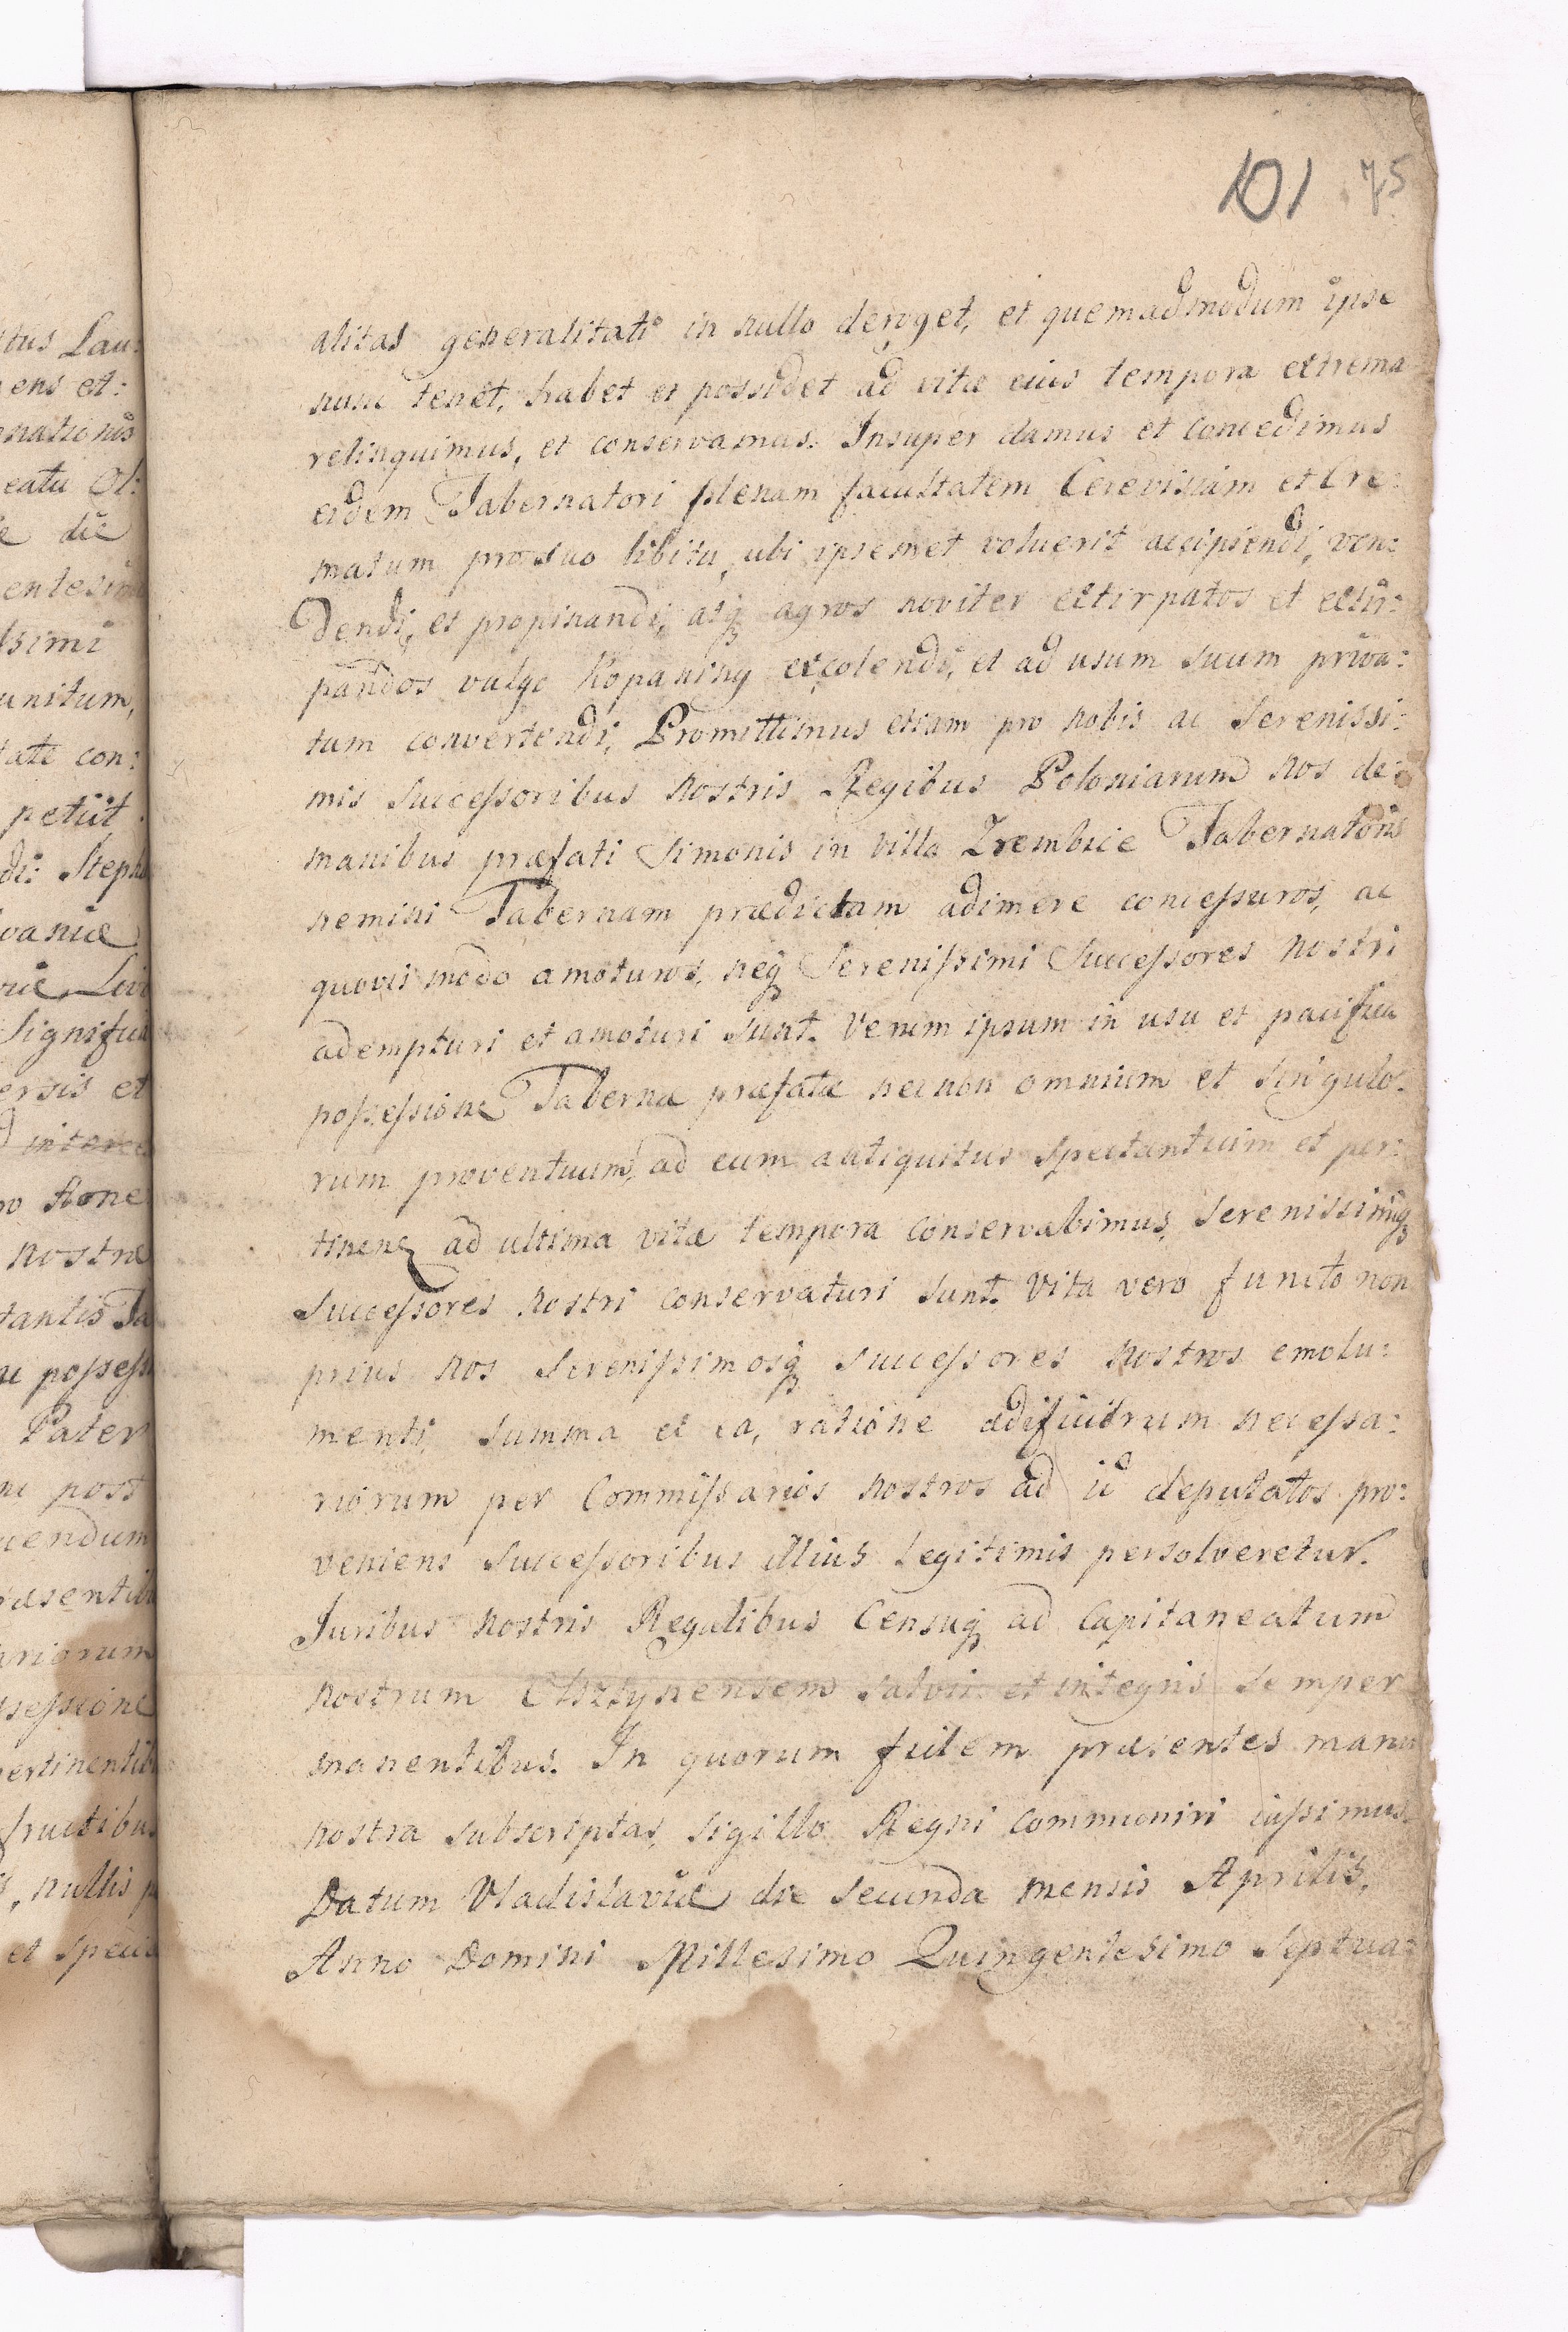 101 75
alitas generalitati in nullo deroget, et quemadmodum ipse
nunc tenet, habet et possidet ad vitæ eius tempora extrema
relinquimus, et conservamus. Insuper damus et concedimus
eidem Tabernatori plenam facultatem Cerevisiam et Cre:
matum pro suo libitu, ubi ipsemet voluerit accipiendi, ven:
dendi, et propinandi, atq agros noviter extirpatos et extir:
pandos vulgo Kopaniny excolendi, et ad usum suum priva:
tum convertendi, Promittimus etiam pro nobis ac Serenissi:
mis Successoribus nostris Regibus Poloniarum nos de
manibus præfati Simonis in villa Zrembice Tabernatoris
nemini Tabernam prædictam adimere concessuros, ac
quovis modo amoturos, neq Serenissimi Successores nostri
adempturi et amoturi sunt. Verum ipsum in usu et pacifica
possessione Tabernæ præfatæ necnon omnium et singulo:
rum proventuum, ad eum antiquitus spectantium et per:
tinen ad ultima vitæ tempora conservabimus, Serenissimiq
Successores nostri conservaturi sunt. Vita vero functo non
prius nos Serenissimosq Successores nostros emolu:
menti, summa et ea, ratione ædificiorum necessa:
riorum per Commissarios nostros ad id deputatos pro:
veniens Successoribus illius Legitimis persolveretur.
Juribus nostris Regalibus Censuq ad Capitaneatum
nostrum Olsztynensem salvis et integris semper
manentibus. In quorum fidem præsentes manu
nostra subscriptas, sigillo Regni communiri iussimus.
Datum Vladislaviæ die secunda mensis Aprilis,
Anno Domini Millesimo Quingentesimo Septua: